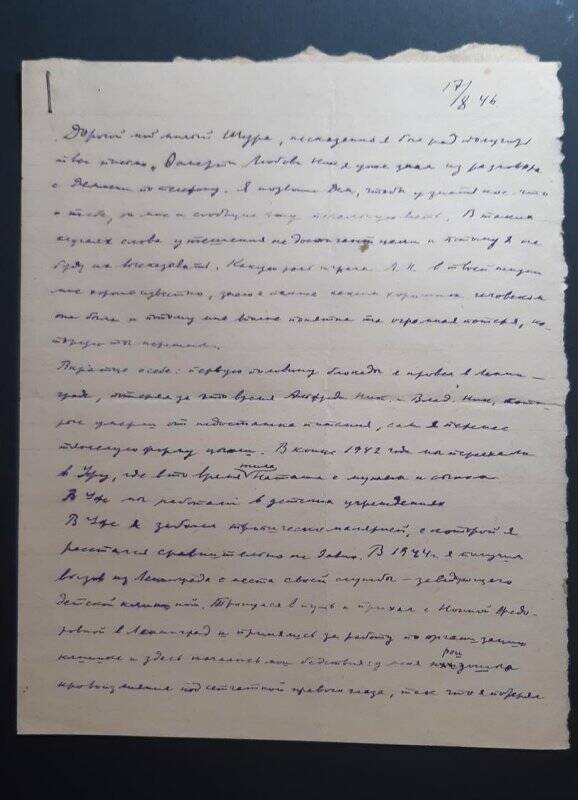 17/8 46
Дорогой мой милый Шура, несказанно я был рад получить
твое письмо. О смерти Любови Ник. я уже знал из разговора
с по телефону. Я позвонил ей, чтобы узнать кое-что
о тебе, он мне и сообщил эту печальную весть. В таких
случаях слова утешения не достигают цели и потому я не
буду их высказывать. Какую роль играла Л. Н. в твоей жизни
мне хорошо известно, знаю также каким хорошим человеком
она была и потому мне вполне понятна та огромная потеря, ко-
торую ты перенес.
Вкратце о себе: первую половину блокады я провел в Ленин-
граде, потерял за это время Ник. и Влад. Ник., кото-
рые умерли от недостатка питания, сам я перенес
тяжелую форму цынги. В конце 1942 года мы переехали
в Уфу, где в то время жила Наташа с мужем и сыном.
В Уфе мы работали в детских учреждениях
В Уфе я заболел тропической малярией, с которой я
расстался сравнительно не давно. В 1944 г. я получил
вызов из Ленинграда с места своей службы – заведующего
детской клиникой. Тронулся в путь и приехал с Федо-
ровной в Ленинград и принялся за работу по организации
клиники и здесь начались мои бедствия: у меня произошло
кровоизлияние под сетчаткой правого глаза, так что я потерял